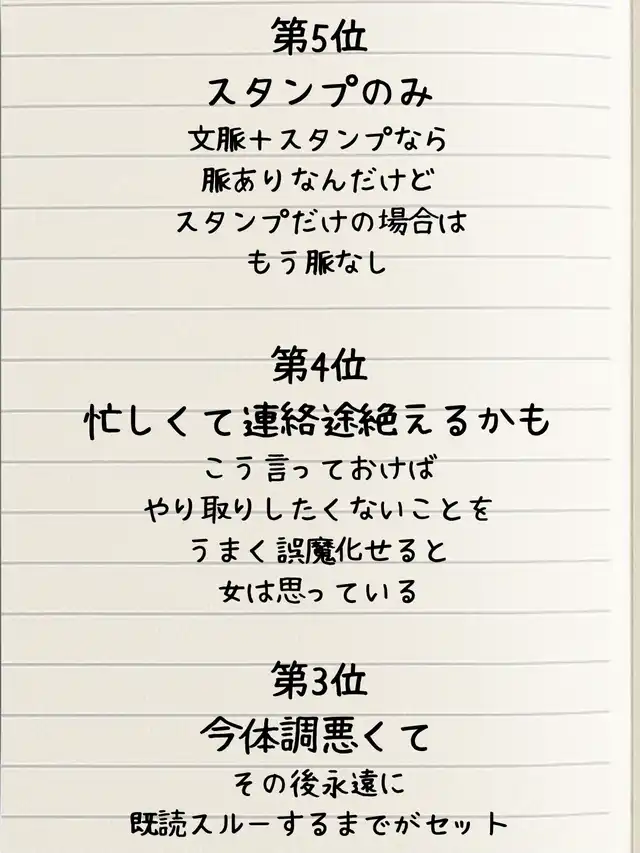 第5位
スタンプのみ
文脈＋スタンプなら
脈ありなんだけど
スタンプだけの場合は
もう脈なし
第4位
忙しくて連絡途絶えるかも
こう言っておけば
やり取りしたくないことを
うまく誤魔化せると
女は思っている
第3位
今体調悪くて
その後永遠に
既読スルーするまでがセット